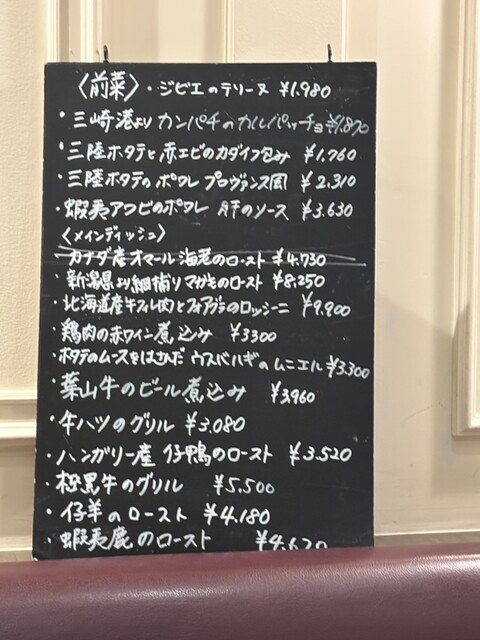 〈前菜〉・ジビエのテリーヌ ¥1.980
・三崎港より カンパチのカルパッチョ ¥1.870
・三陸ホタテと赤エビのカダイフ包み ¥1.760
・三陸ホタテのポワレ プロヴァンス風 ¥2.310
・蝦夷アワビのポワレ 肝のソース ¥3.630
〈メインディッシュ〉
・カナダ産オマール海老のロースト ¥4.730
・新潟県より網捕りマガモのロースト ¥8.250
・北海道産牛フィレ肉とフォアグラのロッシーニ ¥9.900
・鶏肉の赤ワイン煮込み ¥3300
・ホタテのムースをはさんだ ウスバハギのムニエル ¥3.300
・葉山牛のビール煮込み ¥3960
・牛ハツのグリル ¥3.080
・ハンガリー産 仔鴨のロースト ¥3.520
・極黒牛のグリル ¥5,500
・仔羊のロースト ¥4.180
・蝦夷鹿のロースト ¥4.620